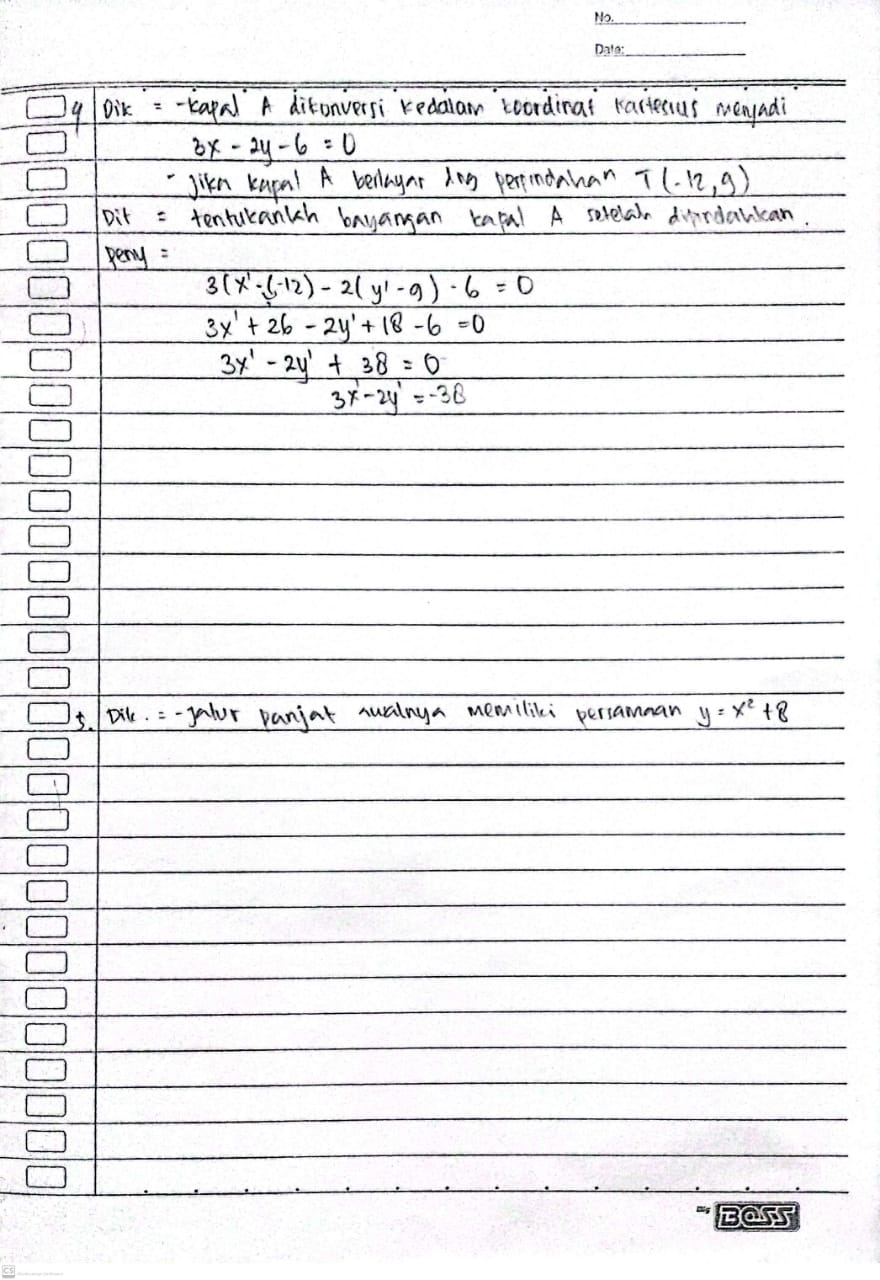 No.
Date:
4 Dik = - kapal A dikonversi kedalam koordinat kartesius menjadi
3x - 2y - 6 = 0
- Jika kapal A berlayar dng perpindahan T (-12, 9)
Dit = tentukanlah bayangan kapal A setelah dipindahkan.
peny =
3(x' - (-12) - 2(y' - 9) - 6 = 0
3x' + 26 - 2y' + 18 - 6 = 0
3x' - 2y' + 38 = 0
3x' - 2y' = -38
5. Dik. = - Jalur panjat awalnya memiliki persamaan y = x² + 8
BOSS
CS